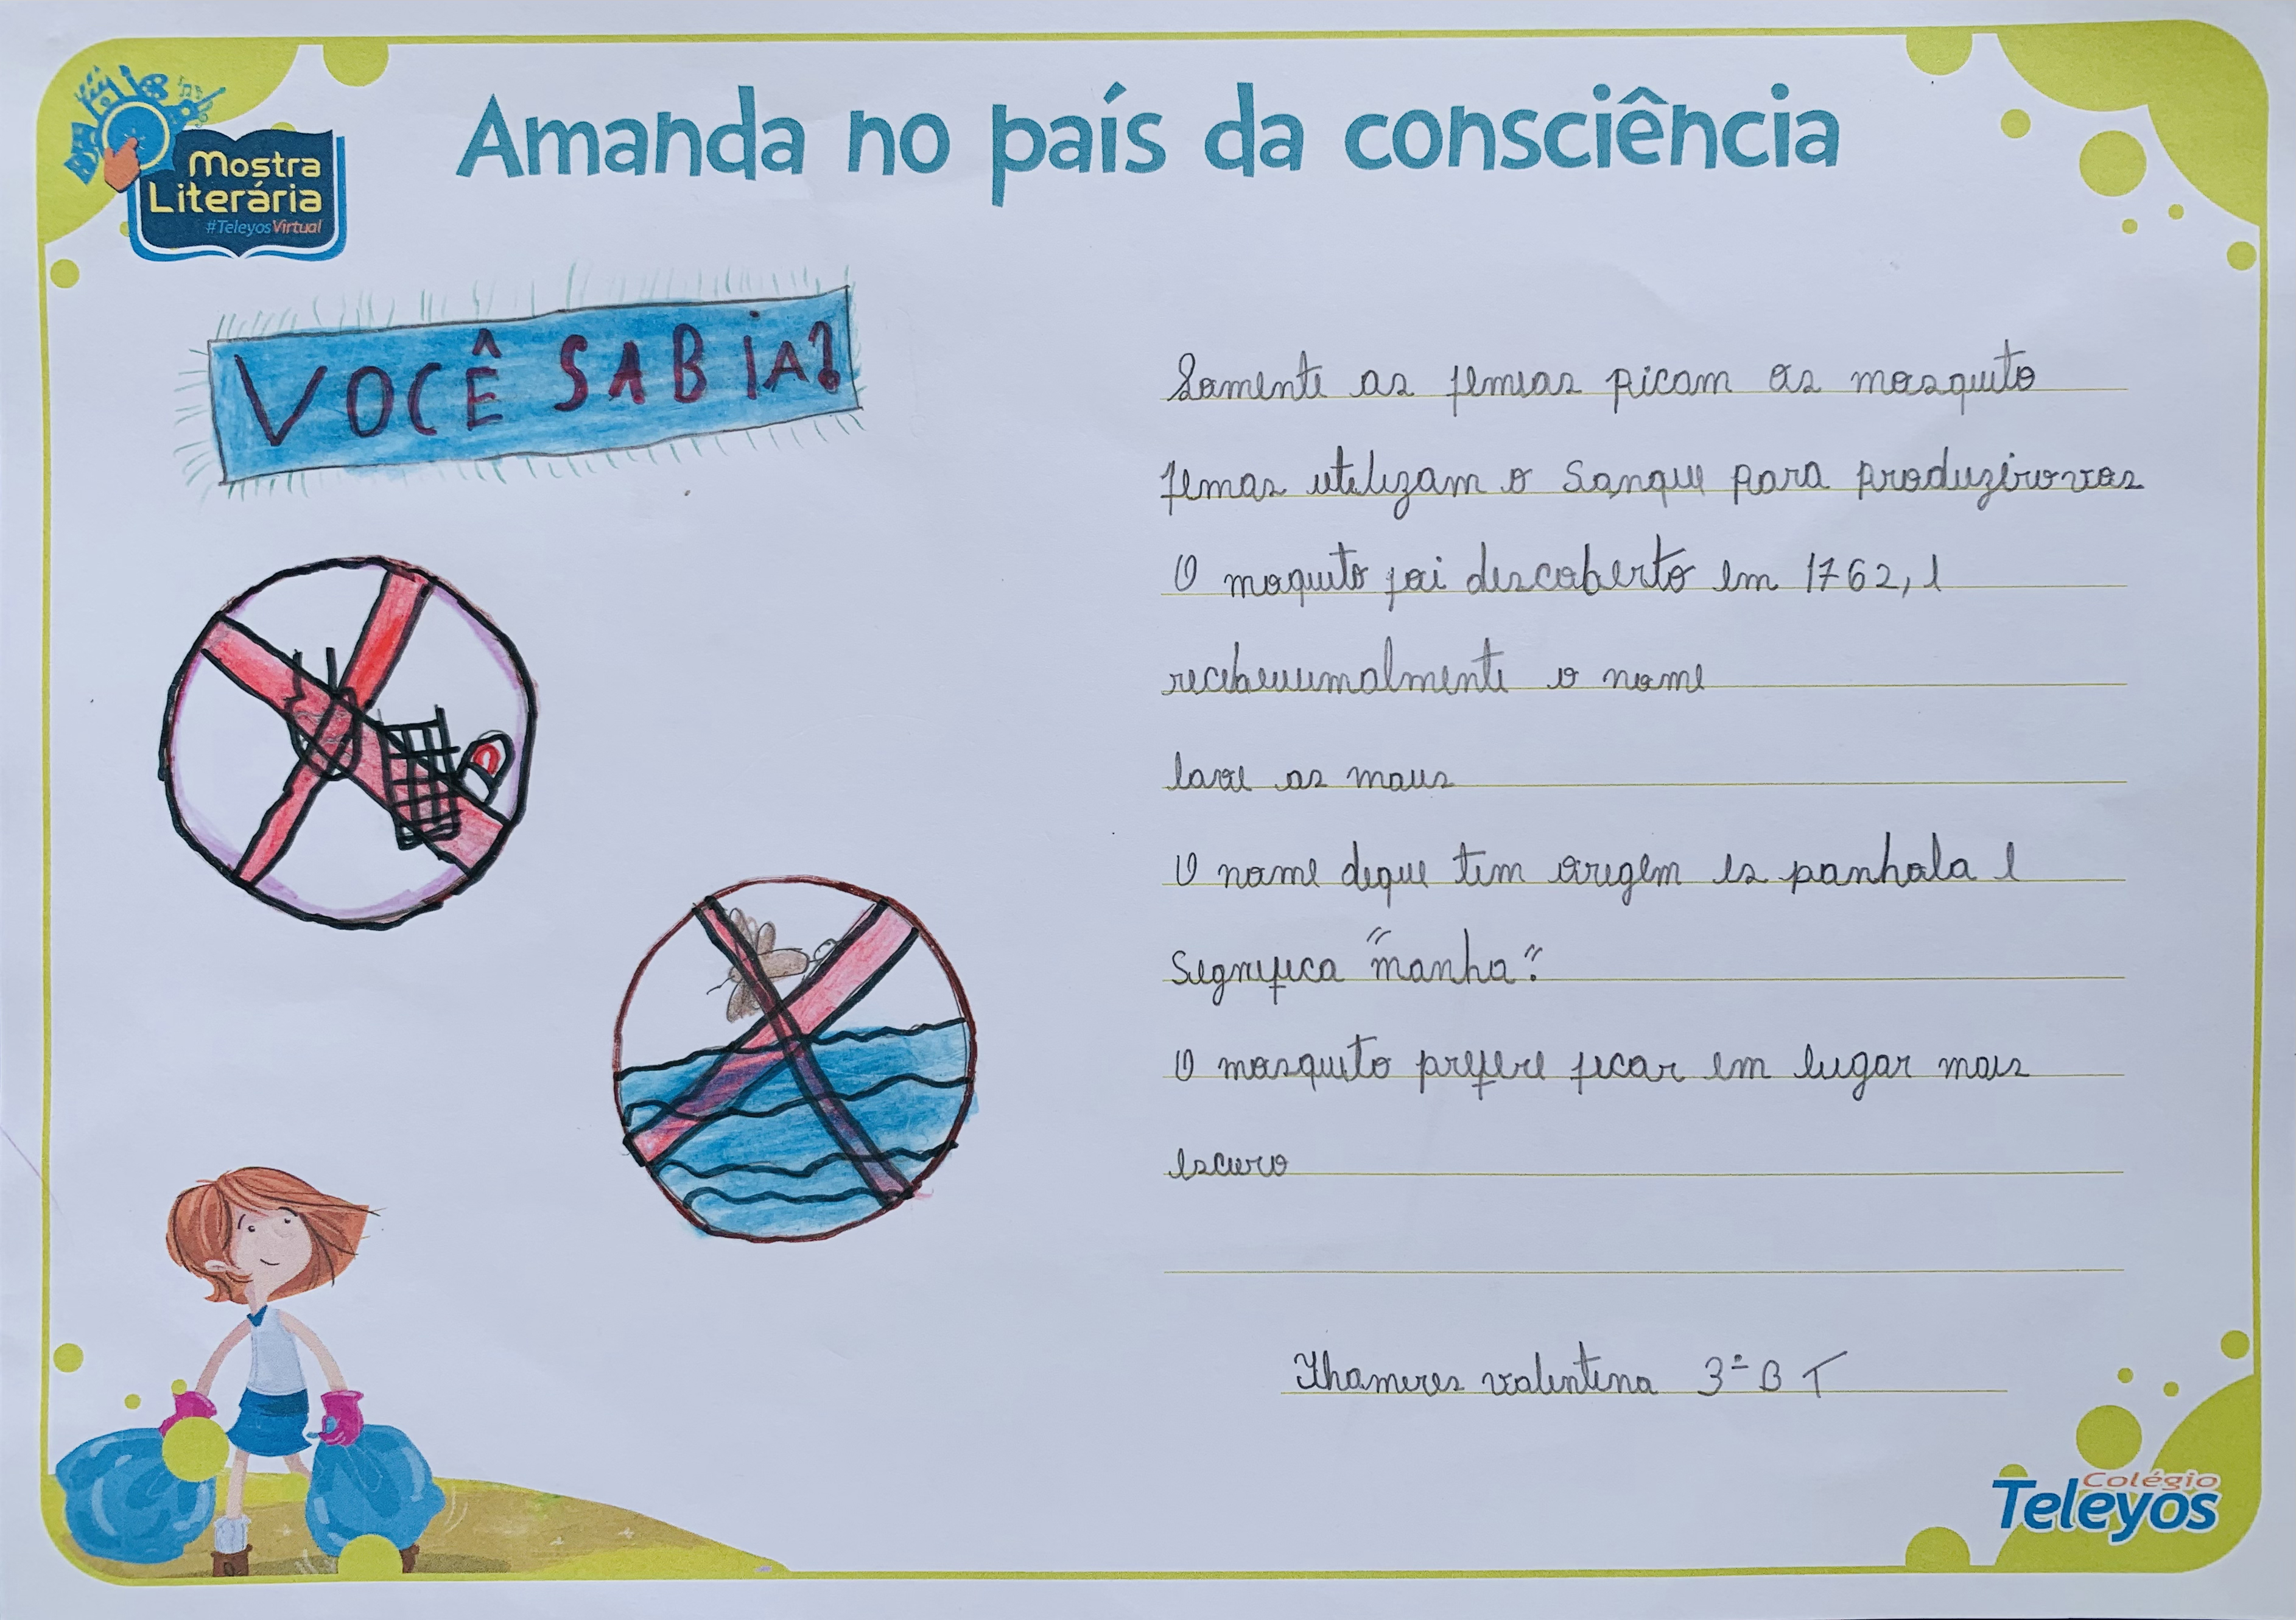 Amanda no país da consciência
Mostra
Literária
#TeleyosVirtual
VOCÊ SABIA?
Somente as femias picam os mosquito
femas utilizam o sangue para produzirovos
O moquito foi descoberto em 1762, e
o nome
lave as maus
O nome deque tem origem es panhola e
significa "manha".
O mosquito prefere ficar em lugar mais
escuro
valentina 3º B T
Colégio
Teleyos